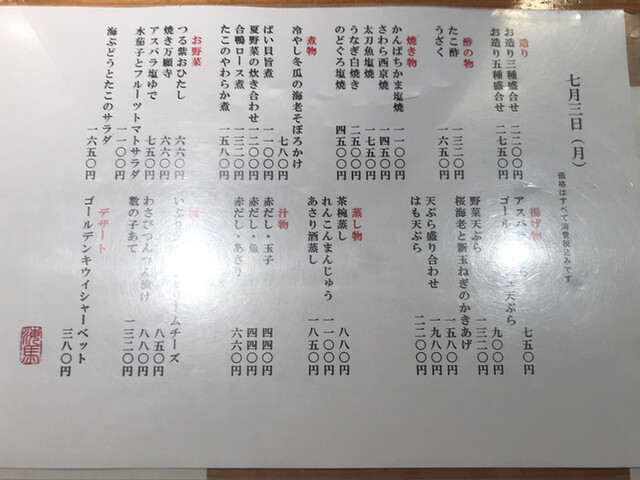 七月三日（月）
価格はすべて消費税込みです
造り
お造り三種盛合せ 二二〇〇円
お造り五種盛合せ 二七五〇円
酢の物
たこ酢 一三二〇円
うざく 一六五〇円
焼き物
かんぱちかま塩焼 一一〇〇円
さわら西京焼 一四五〇円
太刀魚塩焼 一七五〇円
うなぎ白焼き 二五〇〇円
のどぐろ塩焼 四五〇〇円
煮物
冷やし冬瓜の海老そぼろかけ 七八〇円
ばい貝旨煮 一一〇〇円
夏野菜の炊き合わせ 一二〇〇円
合鴨ロース煮 一三二〇円
たこのやわらか煮 一六五〇円
お野菜
つる紫おひたし 六六〇円
焼き万願寺 六六〇円
アスパラ塩ゆで 七五〇円
水茄子とフルーツトマトサラダ 一一〇〇円
海ぶどうとたこのサラダ 一六五〇円
揚げ物
アスパラ ら 七五〇円
ゴール 天ぷら 九〇〇円
野菜天ぷら 一三二〇円
桜海老と新玉ねぎのかきあげ 一五八〇円
天ぷら盛り合わせ 一九八〇円
はも天ぷら 二二〇〇円
蒸し物
茶椀蒸し 八八〇円
れんこんまんじゅう 一一〇〇円
あさり酒蒸し 一八五〇円
汁物
赤だし・玉子 四四〇円
赤だし・魚 四四〇円
赤だし・あさり 六六〇円
いぶり ームチーズ 八五〇円
わさびつんつん漬け 八八〇円
数の子あて 一三二〇円
デザート
ゴールデンキウイシャーベット 三八〇円